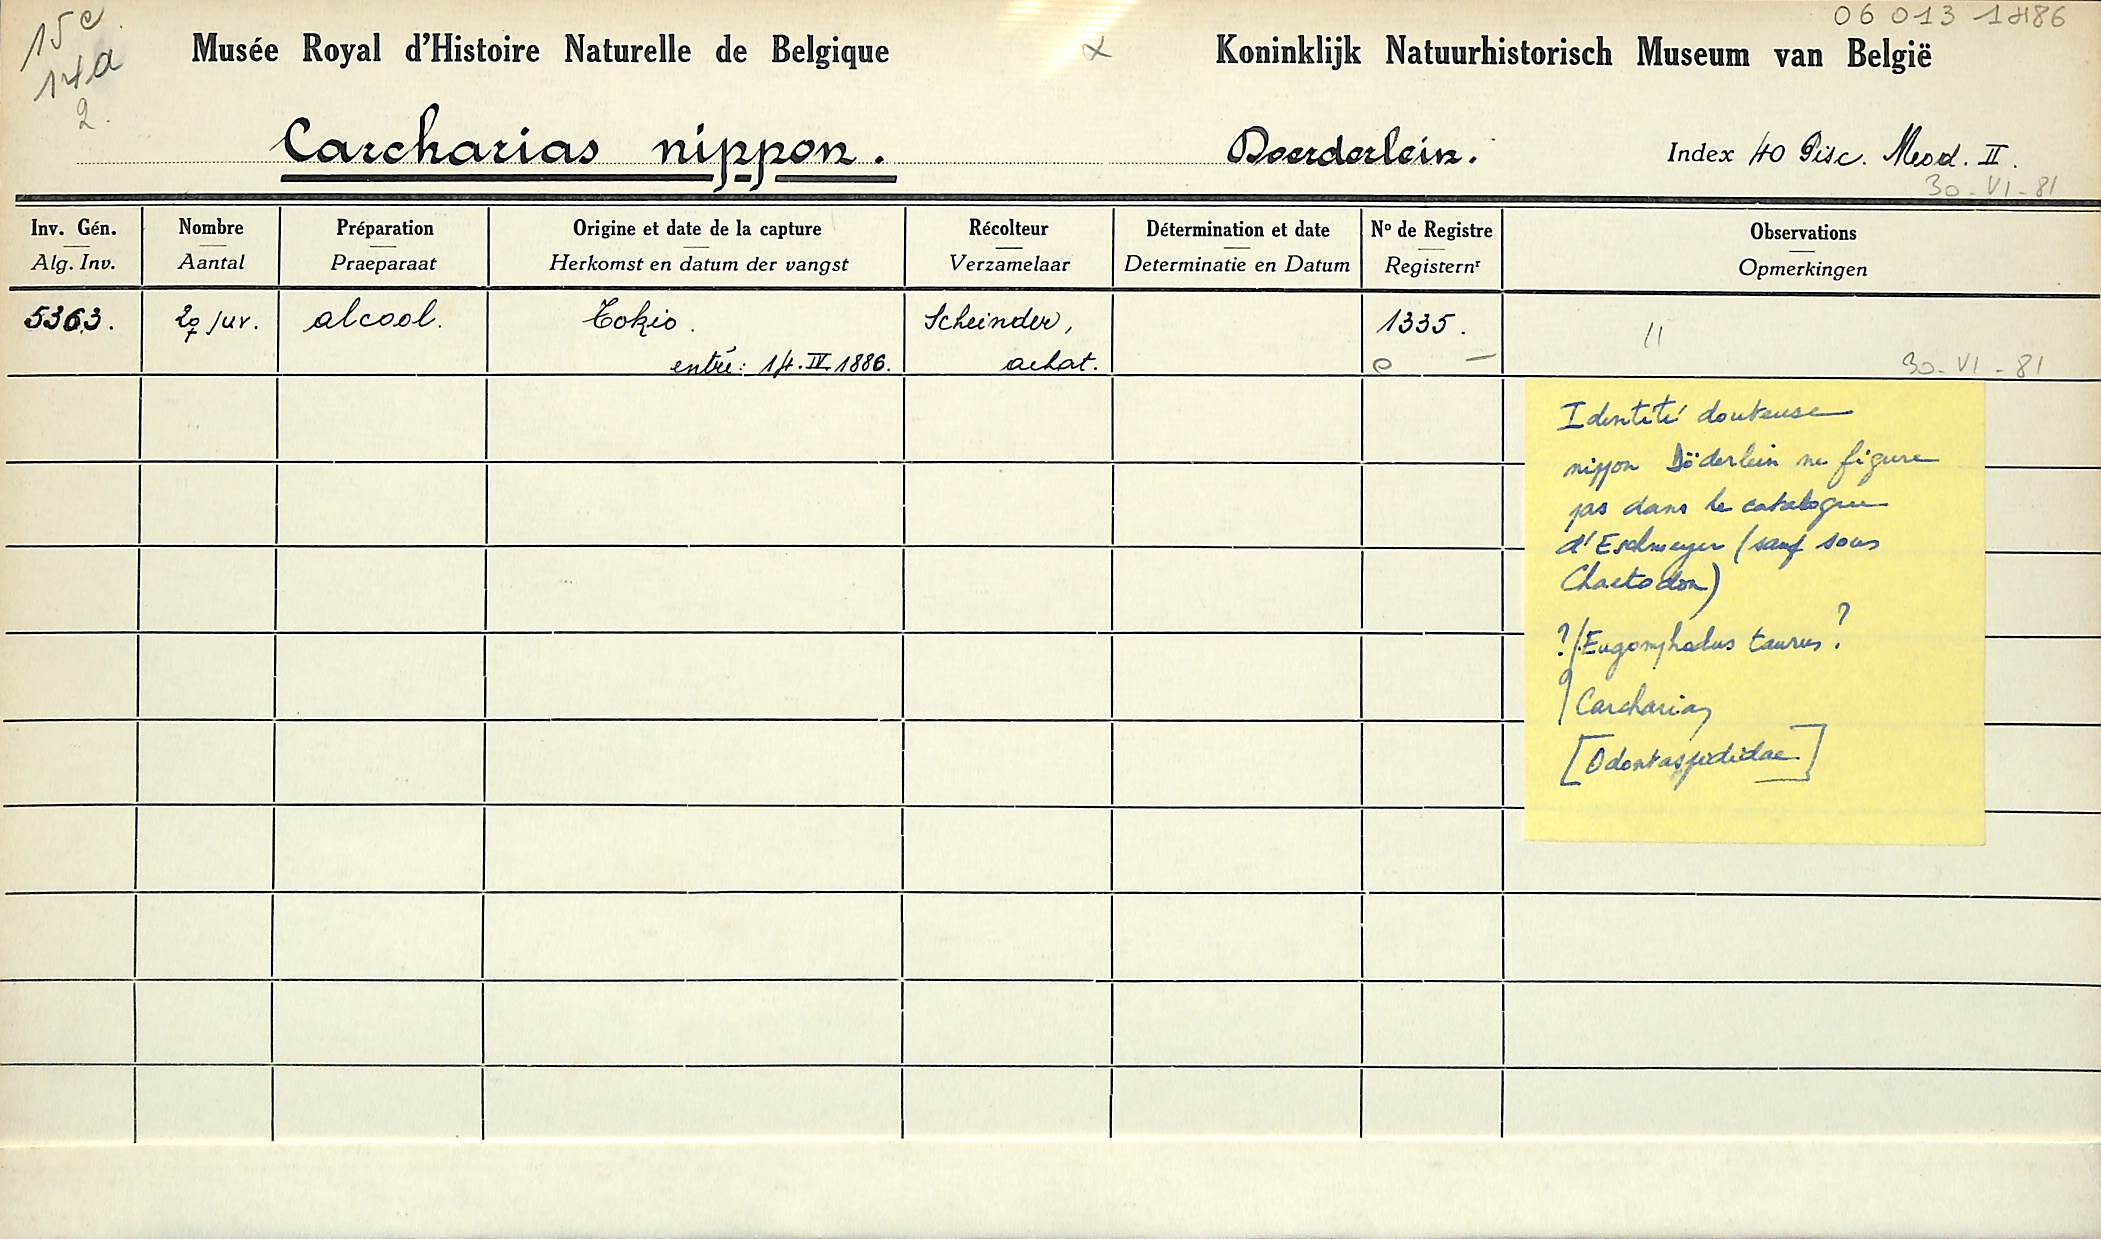 15 c
14a
2.
06 013 1486
Musée Royal d'Histoire Naturelle de Belgique
Koninklijk Natuurhistorisch Museum van België
Carcharias nippon. Doerderlein. Index 40 Pisc. Mood. II.
30-VI-81
Inv. Gén. Nombre Préparation Origine et date de la capture Récolteur Détermination et date Nº de Registre Observations
Alg. Inv. Aantal Praeparaat Herkomst en datum der vangst Verzamelaar Determinatie en Datum Registernr Opmerkingen
5363. 2♀ juv. alcool. Tokio. Scheinder, 1335. //
entré: 14.IV 1886. achat. e — 30-VI-81
Identité douteuse
nippon Döderlein ne figure
pas dans le catalogue
d'Eschmeyer (sauf sous
Chaetodon)
? / Eugomphodus taurus ?
Carcharias
[Odontaspididae]